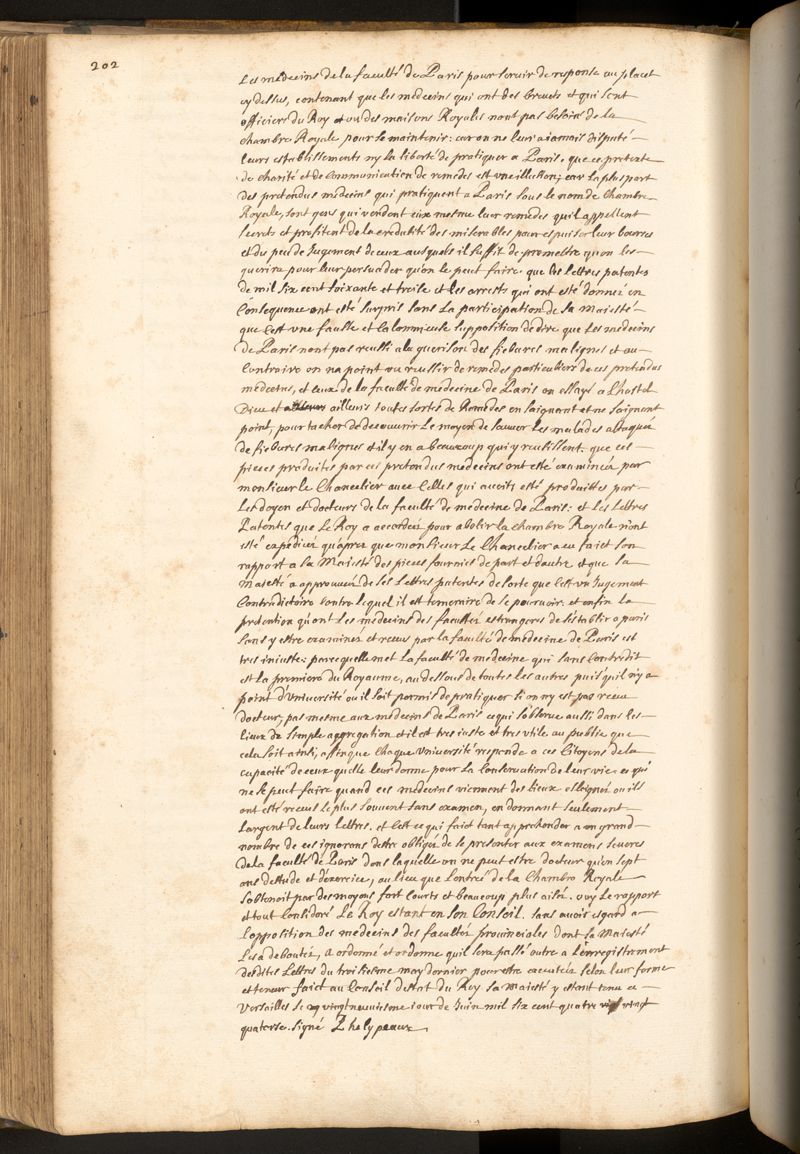 202
Les medecins de la faculté de Paris pour servir de response au placet
cy dessus, contenant que les medecins qui ont des brevets et qui sont
officiers du Roy et ou des maisons Royales n'ont pas besoin de la
chambre Royale pour se maintenir: car on ne leur a iamais disputé
leurs establissements ny la liberté de pratiquer a Paris, que ce pretexte
de charité et de communication de remedes est une illusion; car la plus part
des pretendus medecins qui pratiquent a Paris sous le nom de Chambre
Royale, sont gens qui vendent eux mesme leur remedes quil appellent
secrets et profitent de la credulité des miserables pour espuiser leur bources
et du peu de Jugement de ceux ausquels il suffit de promettre qu'on les
guerira pour leur persuader qu'on le peut faire. que les lettres patentes
de mil six cent soixante et treise et les arrests qui ont esté donnez en
Consequence ont esté surpris sans la participation de sa Maiesté
que c'est une fausse et calomnieuse supposition de dire que les medecins
de Paris n'ont pas reussi a la guerison des fiebures malignes et au
Contraire on n'a point veu reussir de remedes particuliers de ces pretendus
medecins, et ceux de la faculté de medecine de Paris on essayé a L'hostel
Dieu et ailleurs toutes sortes de Remedes en saignant et ne saignant
point, pour tacher de decouvrir le moyen de sauver les malades attaquéz
de fiebures malignes et il y en a beaucoup qui y reusissent. que ces
pieces produites par ces pretendus medecins ont esté examinéez par
monsieur le Chancelier avec Celles qui avoits esté produittes par
Les doyen et docteurs de la faculté de medecine de Paris: et les lettres
Patentes que Le Roy a accordéez pour abolir la chambre Royale n'ont
esté expediéez qu'aprez que monsieur Le Chancelier a eu faict son
rapport a sa Maiesté des pieces fournies de part et dautre et que sa
Maiesté a approuvéz de ses lettres patentes de sorte que c'est un Jugement
Contradictoire contre lequel il est temeraire de se pourvoir. et enfin la
pretention qu'ont les medecins des facultez estrangeres de s'establir a paris
sans y estre examinez et receus par la faculté de medecine de Paris est
tres iniuste: parce quelle met la faculté de medecine qui sans Contredit
est la premiere du Royaume, au dessous de toutes les autres puis'quil n'y a
point d'Université ou il soit permis de pratiquer si on n'y est pas receu
docteur, pas mesme aux medecins de Paris ce qui s'observe aussi dans les
lieux de simple aggregation et il est tres iuste et tres utile au public que
cela soit ainsi, affin que chaque Université responde a ces Citoyens de la
capacité de ceux qu'elle leur donne pour la Conservation de leur vie. ce qui
ne se peut faire quand ces medecins viennent des lieux esloignéz ou ils
ont esté receus le plus souvent sans examen, en donnant seulement
Largent de leurs lettres. et c'est ce qui faict tant apprehender a un grand
nombre de ces ignorans d'etre obligéz de se presenter aux examens severes
de la faculté de Paris dans laquelle on ne peut estre docteur qu'en sept
ans destude et d'exercice, au lieu que l'entrée de la Chambre Royale
s'obtenoit par des moyens fort courts et beaucoup plus aiséz. ouy le rapport
et tout Consideré Le Roy estant en son Conseil. sans avoir esgard a
l'opposition des medecins des facultez provinciales dont sa Maiesté
Les a deboutéz, a ordonné et ordonne qu'il sera passé outre a l'enregistrement
desdites lettres du troisiesme may dernier pour estre executéez selon leur forme
et teneur faict au Conseil d'estat du Roy sa Maiesté y estant tenu a
Versailles le vingtneuviesme iour de Juin mil six cent quatre vingt
quatorse. signé Phelypeaux